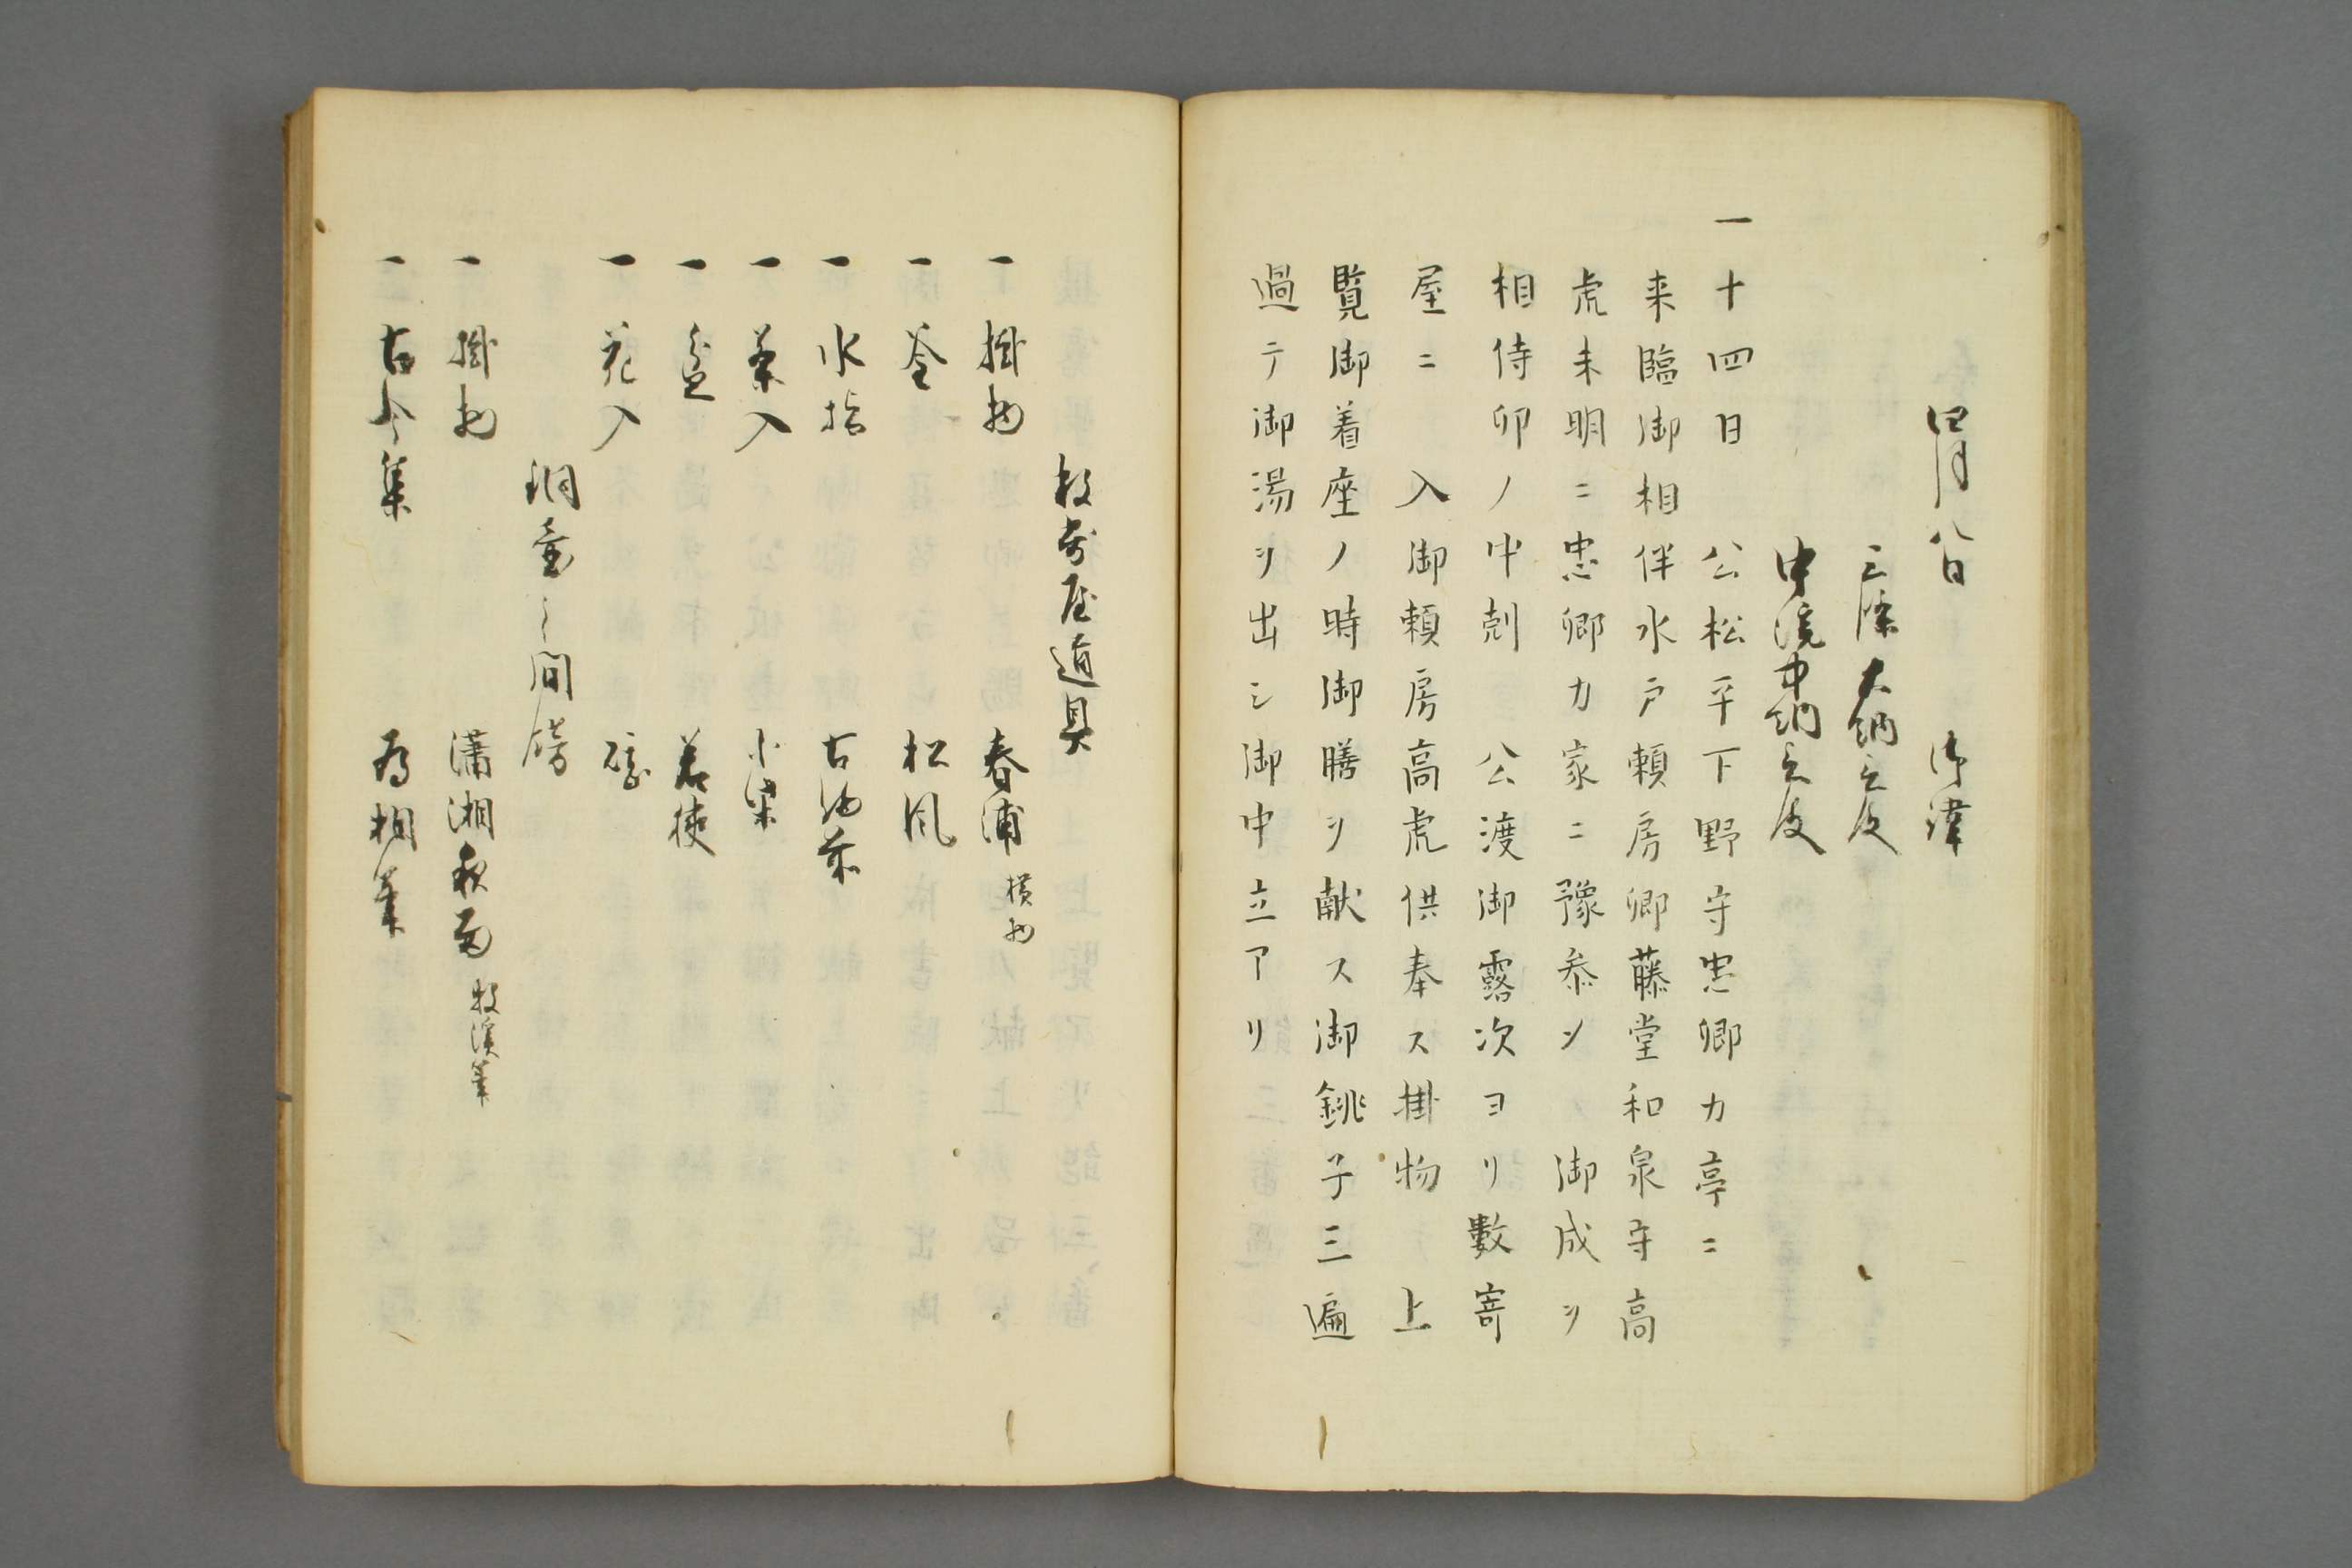 四月八日　御諱
三條大納言殿
中院中納言殿
一十四日　公松平下野守忠卿カ亭ニ
来臨御相伴水戸頼房卿藤堂和泉守高
虎未明ニ忠卿カ家ニ豫参シ　御成ヲ
相待卯ノ中剋　公渡御露次ヨリ數寄
屋ニ　入御頼房高虎供奉ス掛物　上
覧御着座ノ時御膳ヲ献ス御銚子三遍
過テ御湯ヲ出シ御中立アリ
数寄屋道具
一掛物　春浦横物
一釜　松風
一水指　古備前
一茶入　小
一盆　若狭
一花入
洞壷之間餝
一掛物　瀟湘夜雨牧溪筆
一古今集　為相筆